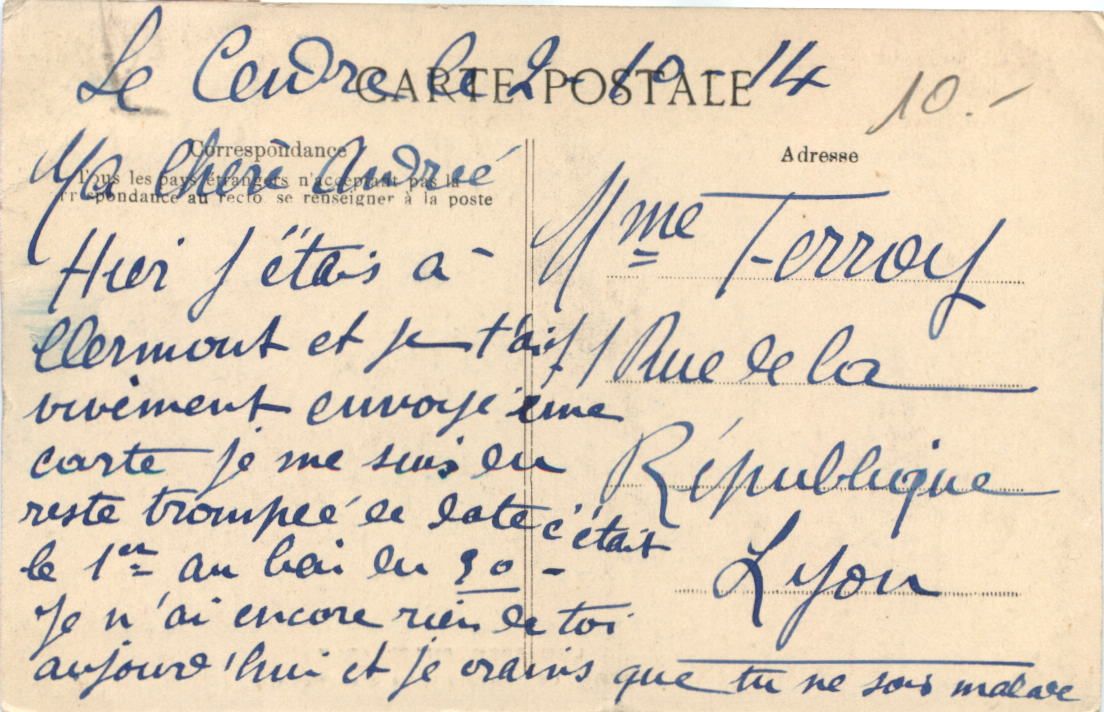 Le Cendre le 2-10-14
CARTE POSTALE
10.-
Correspondance
Tous les pays étrangers n'acceptant pas la
rrespondance au recto, se renseigner à la poste
Adresse
Ma cherè Andreé
Hier j'étais a
Clermont et je t'ai
vivement envoyé une
carte je me suis du
reste trompeé de date c'était
le 1er au lieu du 30 -
Je n'ai encore rien de toi
aujourd'hui et je crains que tu ne sois malade
Mme Terroy
71 Rue de la
République
Lyon